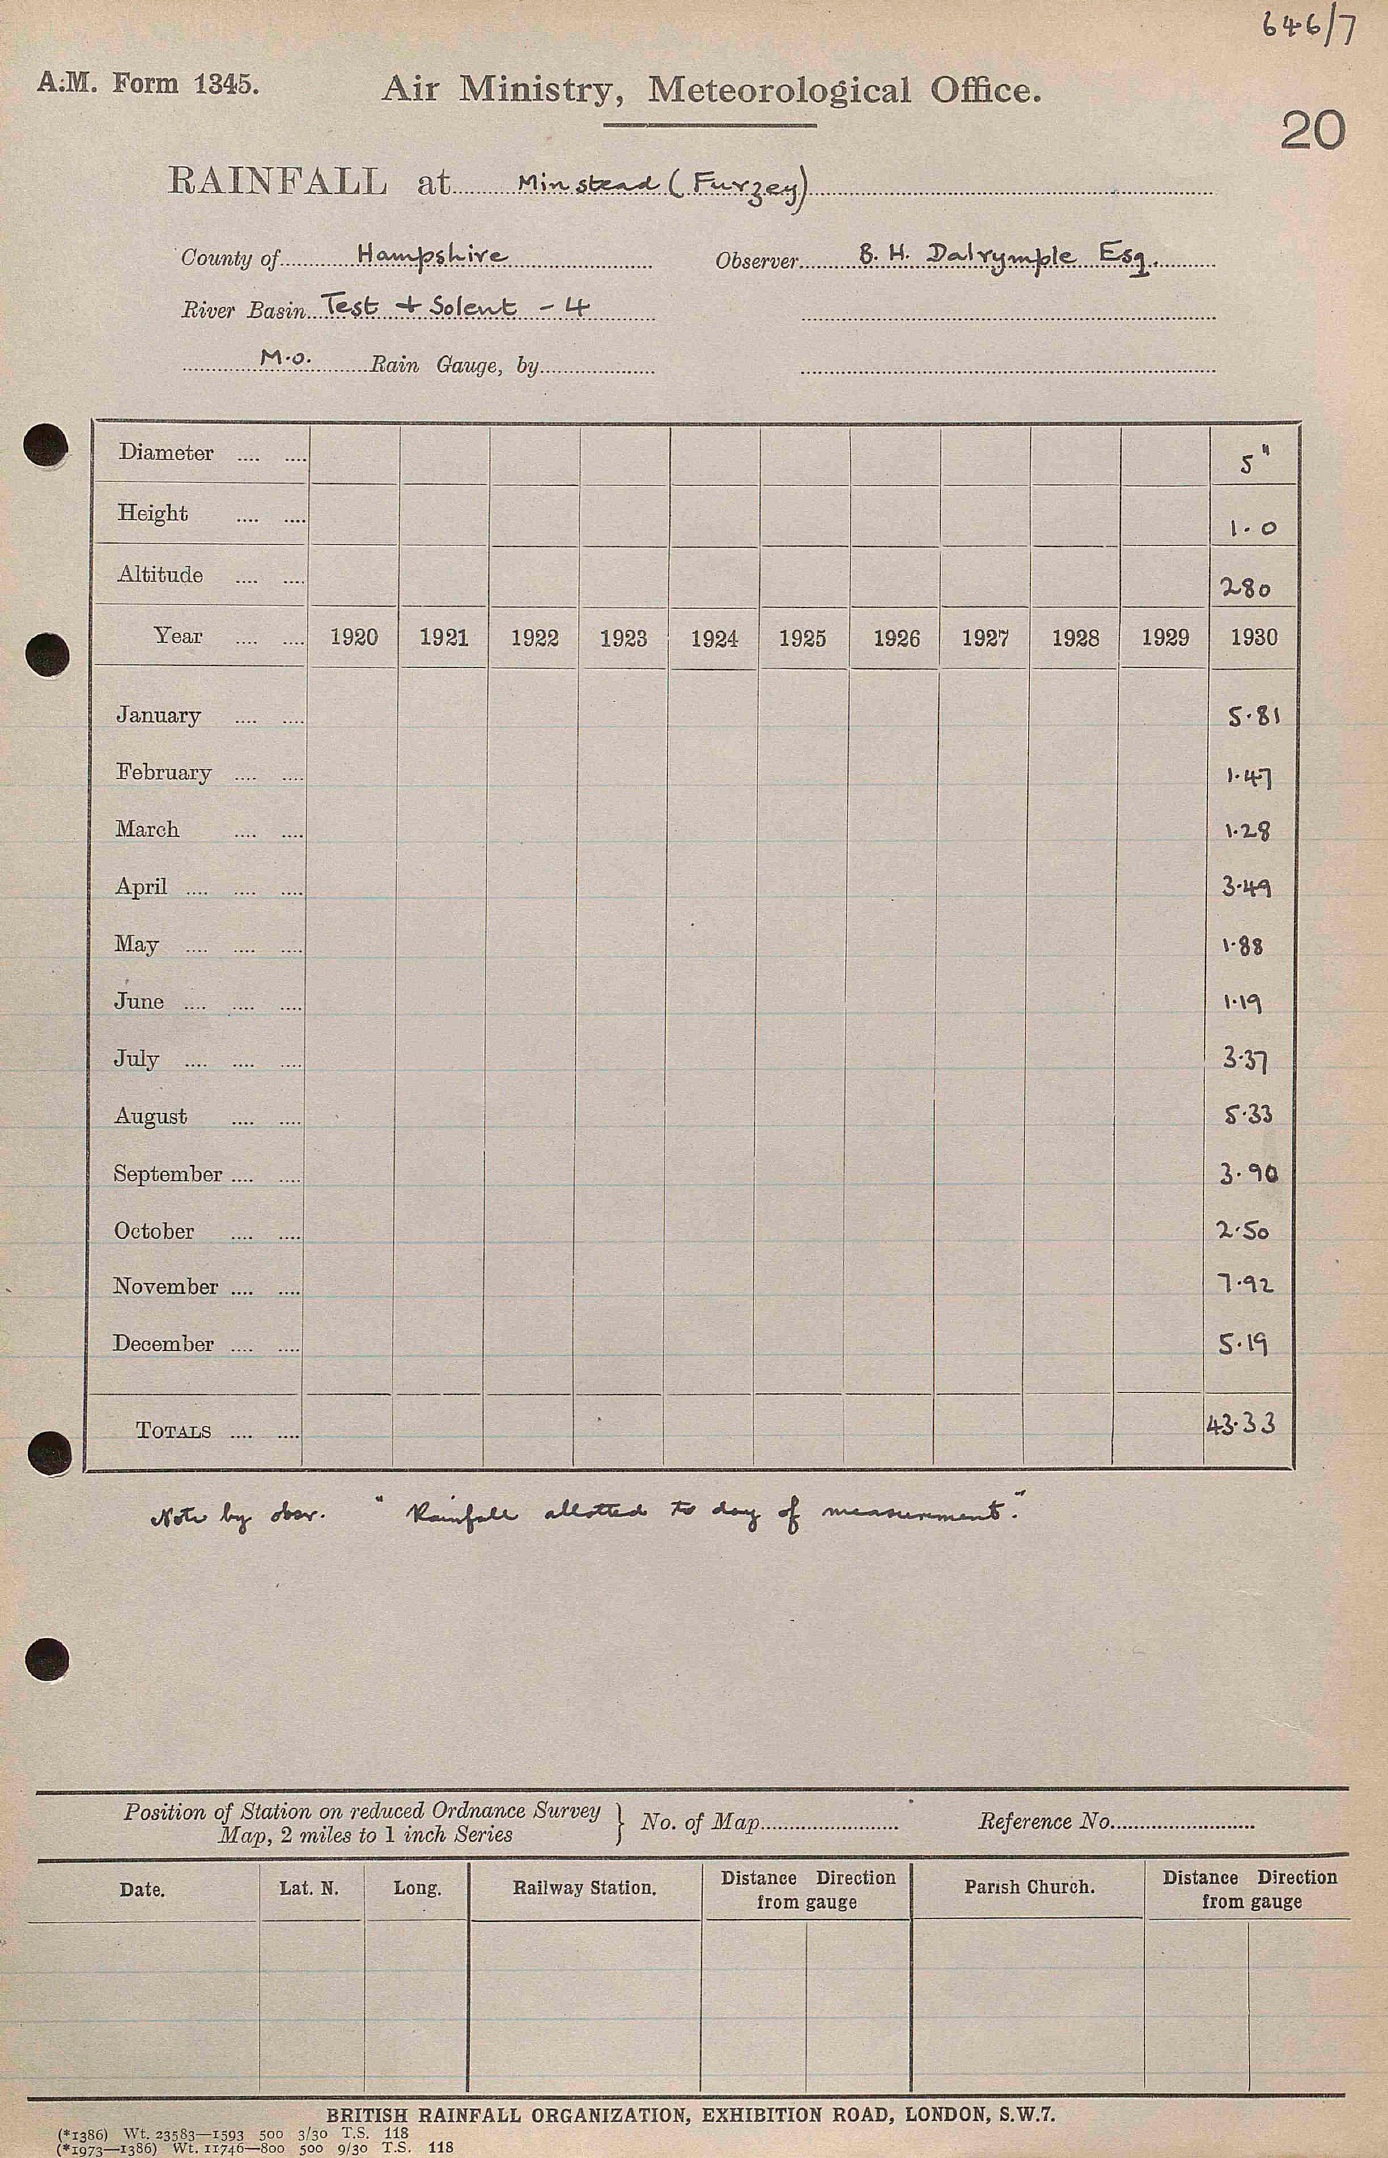 646/7
A.M. Form 1345. Air Ministry, Meteorological Office.
20
RAINFALL at Minstead (Furzey)
County of Hampshire Observer B. H. Dalrymple Esq.
River Basin Test + Solent - 4
M.O. Rain Gauge, by
Diameter .... .... 5"
Height .... .... 1.0
Altitude .... .... 280
Year .... .... 1920 1921 1922 1923 1924 1925 1926 1927 1928 1929 1930
January .... .... 5.81
February .... .... 1.47
March .... .... 1.28
April .... .... .... 3.49
May .... .... .... 1.88
June .... .... .... 1.19
July .... .... .... 3.37
August .... .... 5.33
September .... .... 3.90
October .... .... 2.50
November .... .... 7.92
December .... .... 5.19
TOTALS .... .... 43.33
Note by obsr. "Rainfall allotted to day of measurement."
Position of Station on reduced Ordnance Survey Map, 2 miles to 1 inch Series } No. of Map Reference No.
Date. Lat. N. Long. Railway Station. Distance Direction from gauge Parish Church. Distance Direction from gauge
BRITISH RAINFALL ORGANIZATION, EXHIBITION ROAD, LONDON, S.W.7.
(*1386) Wt. 23583—1593 500 3/30 T.S. 118
(*1973—1386) Wt. 11746—800 500 9/30 T.S. 118